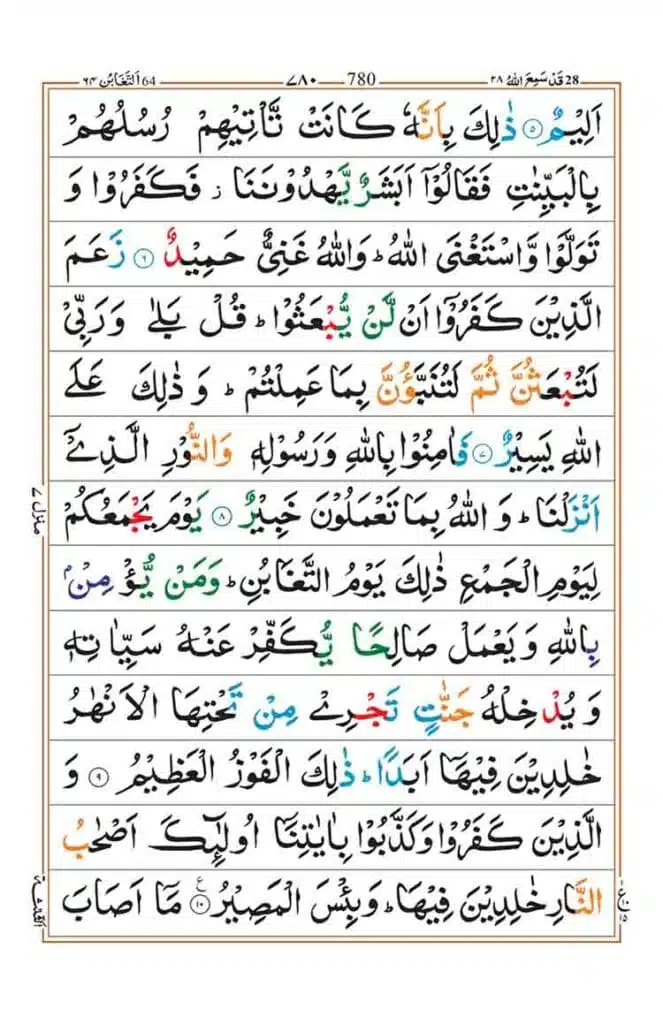 28 قَدْ سَمِعَ اللهُ ٢٨ 780 ٧٨٠ 64 اَلتَّغَابُن ٦٤
اَلِيْمٌ ۝٥ ذٰلِكَ بِاَنَّهٗ كَانَتْ تَّاْتِيْهِمْ رُسُلُهُمْ
بِالْبَيِّنٰتِ فَقَالُوْۤا اَبَشَرٌ يَّهْدُوْنَنَا ز فَكَفَرُوْا وَ
تَوَلَّوْا وَّاسْتَغْنَى اللهُ ؕ وَاللهُ غَنِىٌّ حَمِيْدٌ ۝٦ زَعَمَ
الَّذِيْنَ كَفَرُوْۤا اَنْ لَّنْ يُّبْعَثُوْا ؕ قُلْ بَلٰى وَرَبِّىْ
لَتُبْعَثُنَّ ثُمَّ لَتُنَبَّؤُنَّ بِمَا عَمِلْتُمْ ؕ وَ ذٰلِكَ عَلَى
اللهِ يَسِيْرٌ ۝٧ فَاٰمِنُوْا بِاللهِ وَرَسُوْلِهٖ وَالنُّوْرِ الَّذِىْۤ
اَنْزَلْنَا ؕ وَ اللهُ بِمَا تَعْمَلُوْنَ خَبِيْرٌ ۝٨ يَوْمَ يَجْمَعُكُمْ
لِيَوْمِ الْجَمْعِ ذٰلِكَ يَوْمُ التَّغَابُنِ ؕ وَمَنْ يُّؤْمِنْۢ
بِاللهِ وَيَعْمَلْ صَالِحًا يُّكَفِّرْ عَنْهُ سَيِّاٰتِهٖ
وَ يُدْخِلْهُ جَنّٰتٍ تَجْرِىْ مِنْ تَحْتِهَا الْاَنْهٰرُ
خٰلِدِيْنَ فِيْهَاۤ اَبَدًا ؕ ذٰلِكَ الْفَوْزُ الْعَظِيْمُ ۝٩ وَ
الَّذِيْنَ كَفَرُوْا وَكَذَّبُوْا بِاٰيٰتِنَاۤ اُولٰٓئِكَ اَصْحٰبُ
النَّارِ خٰلِدِيْنَ فِيْهَا ؕ وَبِئْسَ الْمَصِيْرُ ۝١٠ مَاۤ اَصَابَ
منزل ٧